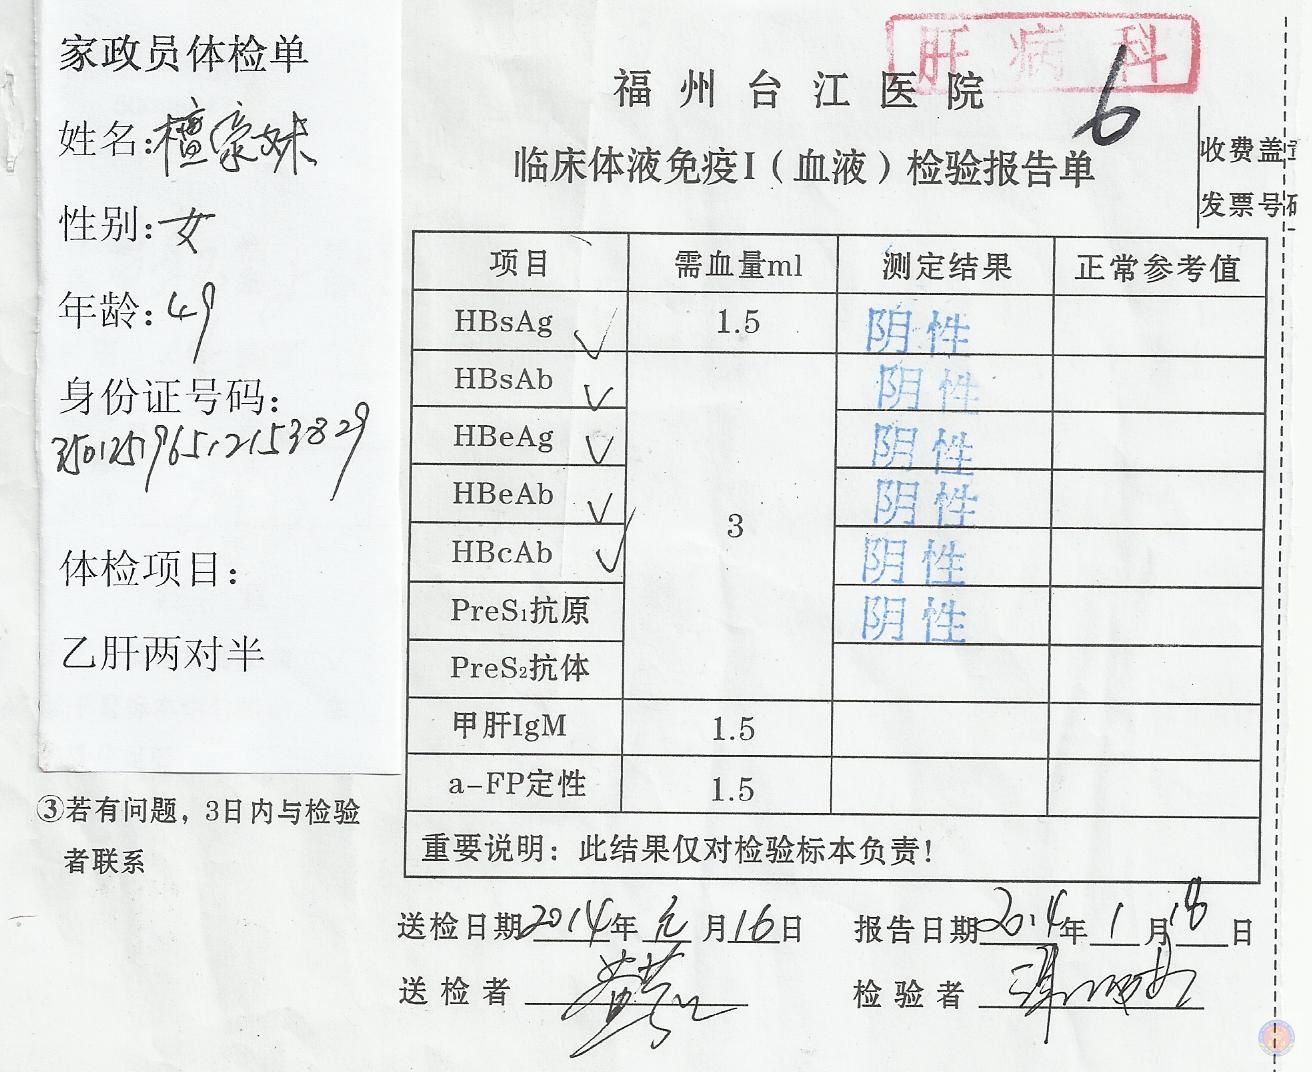 家政员体检单
姓名:檀豪妹
性别:女
年龄:49
身份证号码:
350125196512153829
体检项目:
乙肝两对半
③若有问题，3日内与检验
者联系
肝病科
福州台江医院
6
临床体液免疫I（血液）检验报告单
收费盖章
发票号码
项目 需血量ml 测定结果 正常参考值
HBsAg ✓ 1.5 阴性
HBsAb ✓ 阴性
HBeAg ✓ 阴性
HBeAb ✓ 3 阴性
HBcAb ✓ 阴性
PreS₁抗原 阴性
PreS₂抗体
甲肝IgM 1.5
a-FP定性 1.5
重要说明：此结果仅对检验标本负责！
送检日期2014年元月16日 报告日期2014年1月18日
送检者 检验者